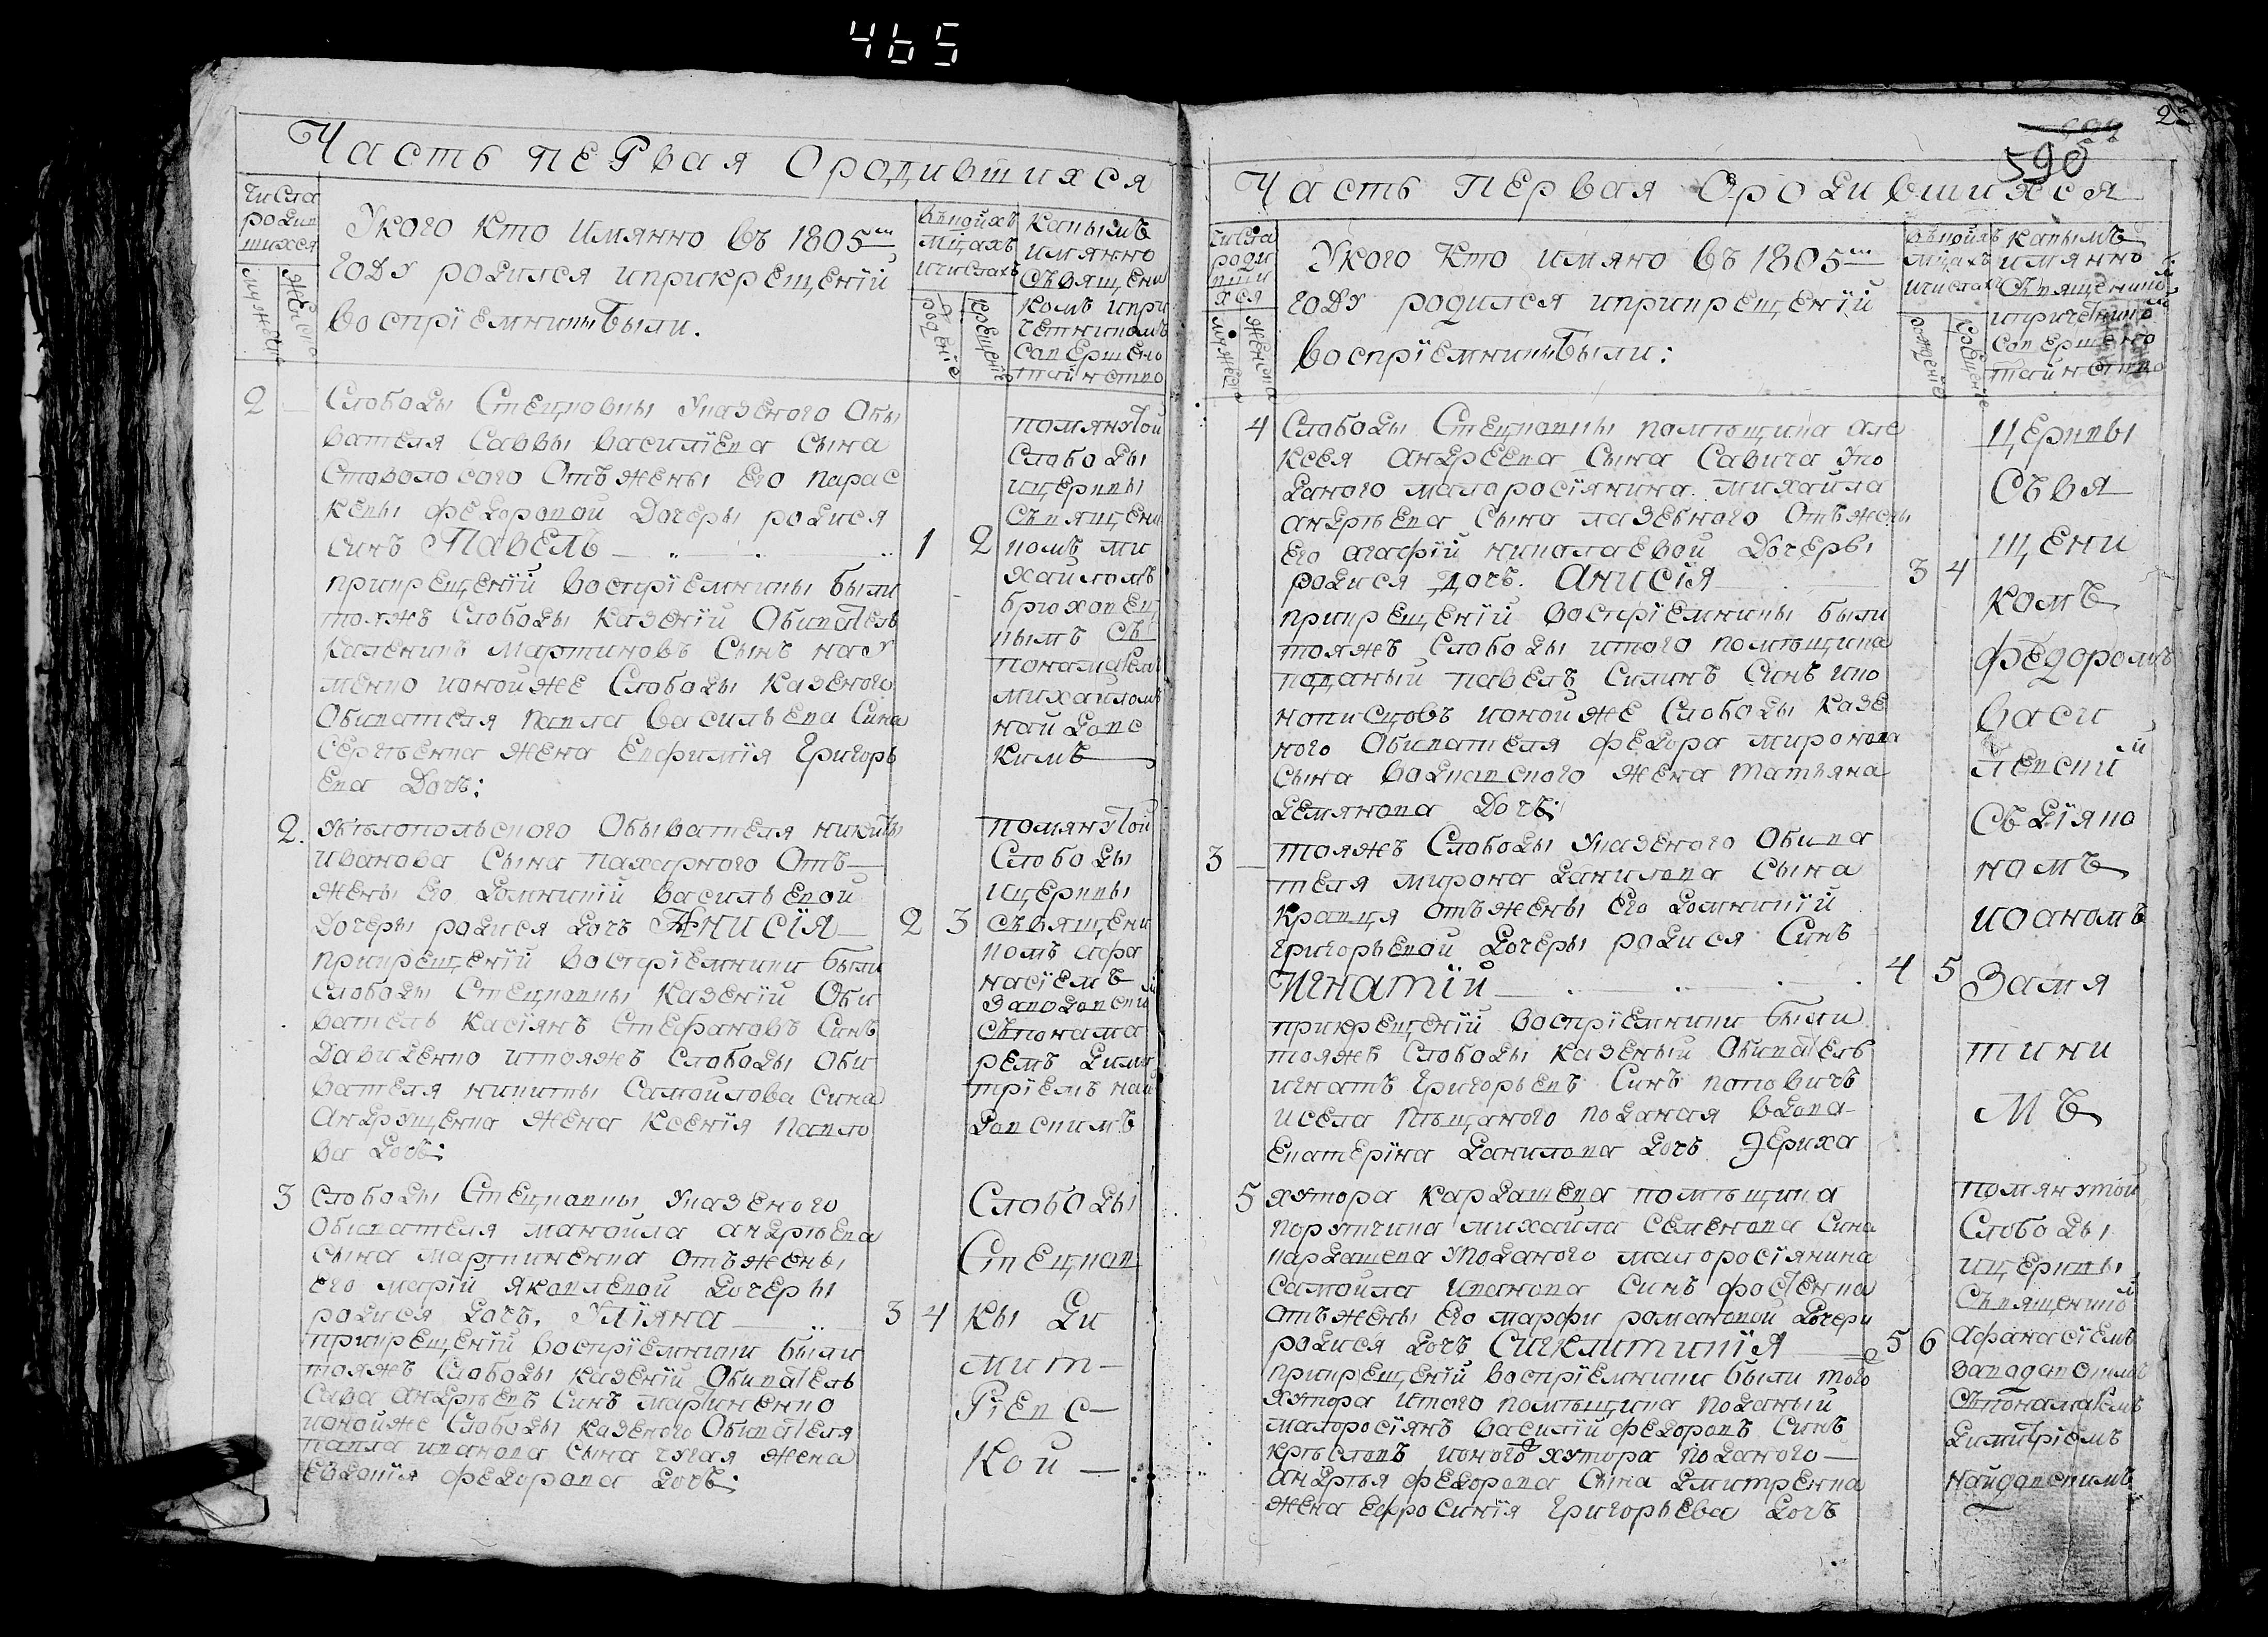 465
Часть первая Ородившихся
числа
родив
шихся
мужеска
женска
Укого Кто Имянно въ 1805ᵐ
году родился иприкрещеніи
воспріемники были.
въкоихъ
мцахъ
ичислахъ
рожденіе
крещеніе
какимъ
имянно
съвящени
комъ ипри
четникомъ
савершено
таинство
2
Слободы Стецковки Указеного Обы
вателя Саввы василіева сына
Стоволосого Отъжены Его парас
кевы федоровой Дочеры родися
синъ Павелъ
1 2
прикрещеніи воспріемники были
тояжъ Слободы казеній Обиватель
каленикъ мартиновъ Сынъ науменко
ионойже Слободы казеного
Обивателя павла васильева Сина
Сергѣенка жена Евфимія Григорь
ева Дочъ:
помянутой
Слободы
ицерквы
съвящени
комъ ми
хаиломъ
брюховец
кымъ съ
понамаремъ
михаиломъ
найдовс
кимъ
2.
Убѣлопольсного Обывателя никиты
иванова Сына пахарного Отъ
жены Его домникіи васильевой
дочеры родися дочъ Анисія
2 3
прикрещеніи воспріемники были
Слободы Стецковки казеній Оби
ватель касіянъ Стефановъ Синъ
Давиденко итояжъ Слободы оби
вателя никиты Самоилова сина
Андрущенка жена Ксенія павло
ва дочъ:
помянутой
Слободы
ицерквы
съвящени
комъ афа
насіемъ
Заводовский
съпонама
ремъ Дими
тріемъ най
довскимъ
3
Слободы Стецковки Указеного
Обивателя манойла андрѣева
сына мартиненка отъжены
его маріи яковлевой дочеры
родися дочъ. Уліяна
3 4
прикрещеніи воспріемники были
тояжъ Слободы казеній Обиватель
Сава андрѣевъ Синъ мартиненко
ионойже Слободы казеного Обивателя
павла иванова Сына чугая жена
Евдокія федорова дочъ:
Слободы
Стецков
кы Ди
мит
Ріевс
кой
2
590
Часть первая Ородившихся
числа
роди
вши
хся
мужеска
женска
Укого Кто имяно въ 1805ᵐ
году родился иприкрещеніи
воспріемники были:
въкоихъ
мцахъ
ичислахъ
рожденіе
крещеніе
какимъ
имянно
съвященико
ипричетнико
савершено
таинство
4
Слободы Стецковки помѣщика але
ксея андреева сына Савича упо
даного малоросіянина михайла
андрѣева Сына лазебного Отъжены
его агафіи николаевой Дочеры
родися дочъ. Анисія
3 4
прикрещеніи воспріемники были
тояжъ Слободы итого помѣщика
паданый павелъ Силинъ Синъ ико
нописцовъ ионойже Слободы казе
ного Обивателя федора миронова
сына водолазского жена татьяна
демянова Дочъ:
церквы
съвя
щени
комъ
федоромъ
васи
левский
съдіяко
номъ
иоаномъ
Замя
тини
мъ
3
тояжъ Слободы Указеного Обива
теля мирона данилова сына
кравця отъжены его домникіи
григорьевой дочеры родися Синъ
Игнатій
4 5
прикрещеніи воспріемники были
тояжъ Слободы казеный Обиватель
игнатъ григорьевъ Синъ поповичъ
исела пѣщаного поданая вдова
Екатерина данилова дочъ
5
хутора кардашева помѣщика
поручика михайла семенова Сина
кардашева Уподаного малоросіянина
самойла иванова синъ фостенка
отъжены его марфи романовой дочери
родися дочъ Сигклитикія
5 6
прикрещеніи воспріемники были того
хутора итого помѣщика поданый
малоросіянъ василій федоровъ Синъ
крѣсловъ ионого хутора поданого
андрѣя федорова Сына дмитренка
жена ефросинія Григорьева дочъ
помянутой
Слободы
ицерквы
съвященикои
афанасіемъ
Заводовскимъ
съпонамаремъ
димитріемъ
найдовскимъ